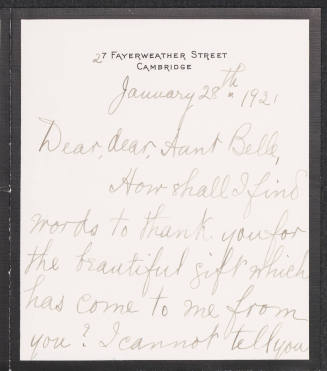 27 FAYERWEATHER STREET
CAMBRIDGE
January 28th 1921
Dear, dear, Aunt Belle,
How shall I find
words to thank you for
the beautiful gift which
has come to me from
you? I cannot tell you